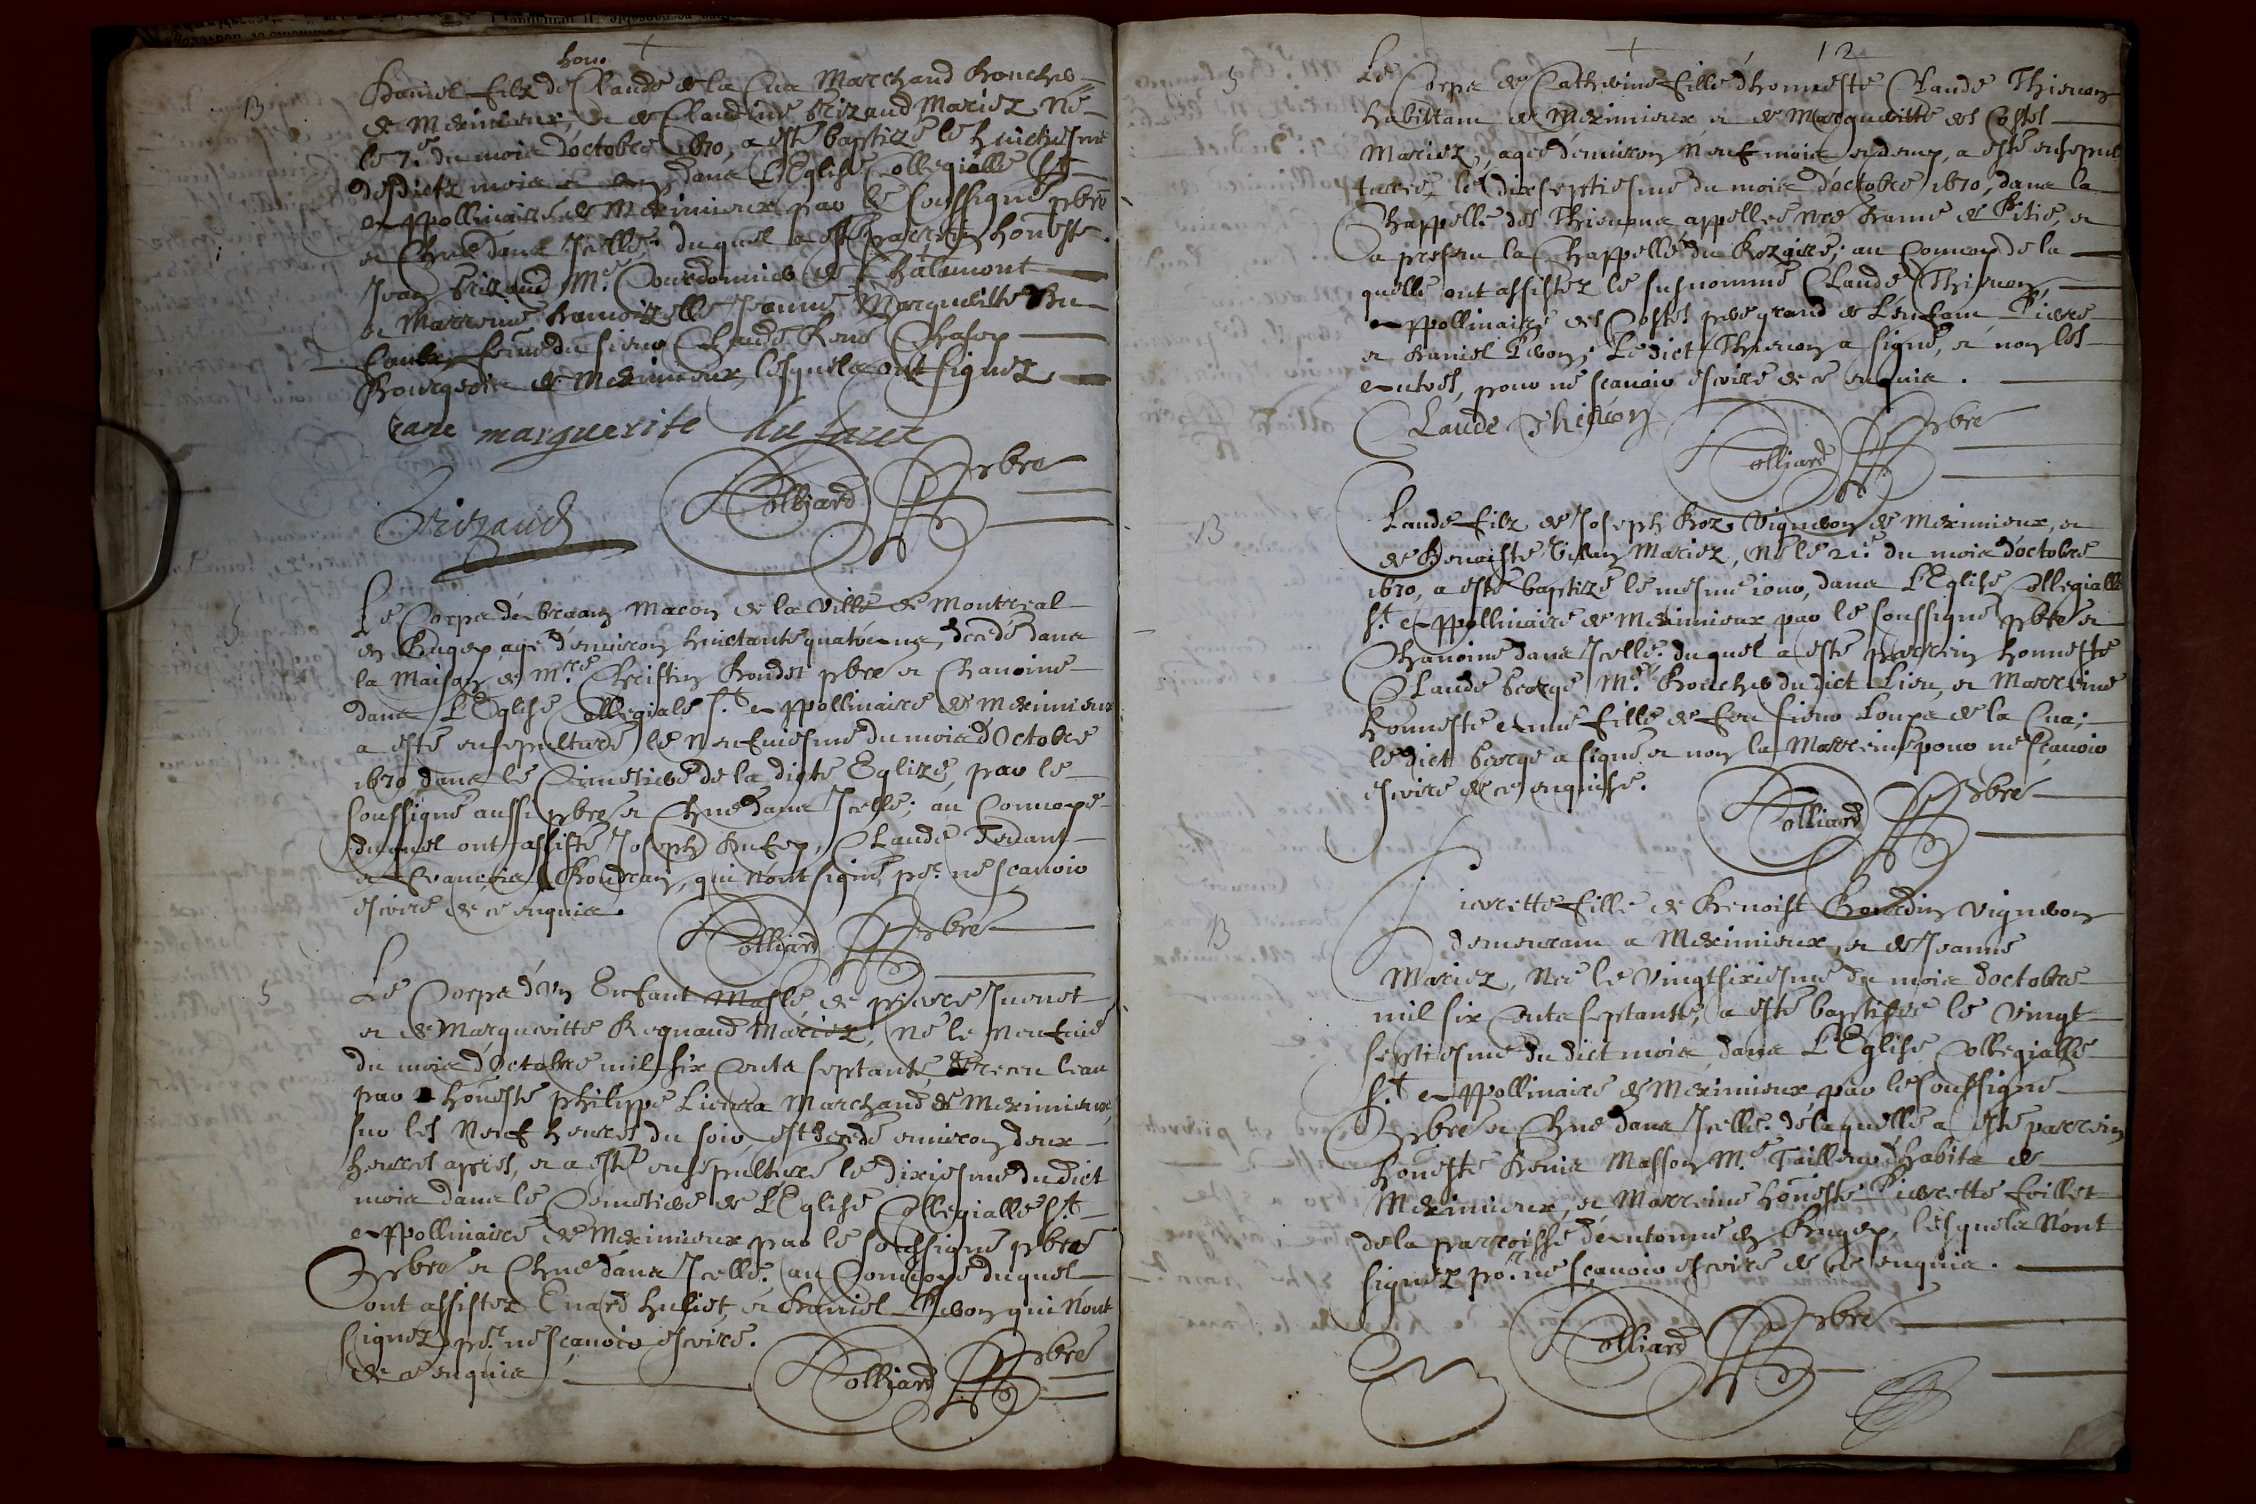 hon.
B
Daniel filz de Claude de la Cua Marchand Boucher
de Meximieux, et de Claudine Brizaud Mariez Né
le 7.e du mois d'octobre 1670, a esté baptizé le huictiesme
desdictz mois et an, dans L'Eglise Collegialle St.
Appollinaire de Meximieux par le soussigné pbre
et Chne dans Icelle; duquel a esté parrein honeste
Jean Brizaud M.e Courdonnier de Chalamont
et Marreine Damoizelle Jeanne Margueritte Du
femme du sieur Claude René Chasey
Bourgeois de Meximieux lesquels ont signez
Jane marguerite du
Brizaud
Colliard Pbre
S
Le Corps de Macon de la Ville de Montreal
en Bugey agé d'environ huictante quatre ans, decedé dans
la Maison de M.re Christin Bondet pbre et Chanoine
dans L'Eglise Collegiale St. Appollinaire de Meximieux
a esté ensepulturé le Neufuiesme du mois d'Octobre
1670, dans le Cimetiere de la dicte Eglize, par le
soussigné aussi pbre et Chne dans Icelle; au Convoye
duquel ont assisté Joseph Claude Tenant
et Francois qui n'ont signé pr. ne scavoir
escrire de ce enquis.
Colliard Pbre
S
Le Corps d'un Enfant Masle, de pierre Juenet
et de Margueritte Regnaud Mariez, né le Neufuie
du mois d'Octobre mil six Cents septante, et receu l'eau
par honeste philippe Marchand de Meximieux,
sur les Neuf heures du soir, est decedé environ deux
heures apres, et a esté ensepulturé le dixiesme du dict
mois dans le Cemetiere de L'Eglise Collegialle St.
Appollinaire de Meximieux par le soussigné pbre
Pbre et Chne dans Icelle; au Convoye duquel
ont assistez Enard huliet, et Daniel qui n'ont
signez pr. ne scavoir escrire.
de ce enquis
Colliard Pbre
12
S
Le Corps de Catherine fille d'honneste Claude Thienon
habittant de Meximieux et de Margueritte des Costes
Mariez, agée d'environ Neuf mois et demy, a esté ensepul
turée, le dixseptiesme du mois d'octobre 1670, dans la
Chappelle des Thienons appellée Nre Dame de Pitié, et
a present la Chappelle du Rozaire; au Convoy de la
quelle ont assistez le susnommé Claude Thienon,
Appollinaire des Costes pere grand de L'enfant Pierre
et Daniel Ledict Thienon a signé, et non les
autres, pour ne scavoir escrire de ce enquis.
Claude Thienon
Colliard Pbre
B
Claude filz de Joseph Roz Vigneron de Meximieux, et
de Benoiste Mariez, Né le 21.e du mois d'octobre
1670, a esté baptizé le mesme iour, dans L'Eglise Collegialle
St. Appollinaire de Meximieux par le soussigné pbre et
Chanoine dans Icelle; duquel a esté parrein honneste
Claude George M.re Boucher du dict Lieu, et Marreine
honneste Anne fille de feu sieur Loups de la Cua;
le dict George a signé et non la Marreine pour ne scavoir
escrire de ce enquise.
Colliard Pbre
B
Pierrette fille de Benoist Bourdin Vigneron
demeurant a Meximieux, et de Jeanne
Mariez, Née le vingtsixiesme du mois d'octobre
mil six Cents septante, a esté baptisée le vingt
septiesme du dict mois dans L'Eglise Collegialle
St. Appollinaire de Meximieux par le soussigné
Pbre et Chne dans Icelle; de laquelle a esté parrein
honeste Denis Masson M.e Tailleur d'habits de
Meximieux, et Marreine honeste Pierrette
de la parroisse d'Antonne en Bugey, lesquels n'ont
signez pr. ne scavoir escrire de ce enquis.
Colliard Pbre